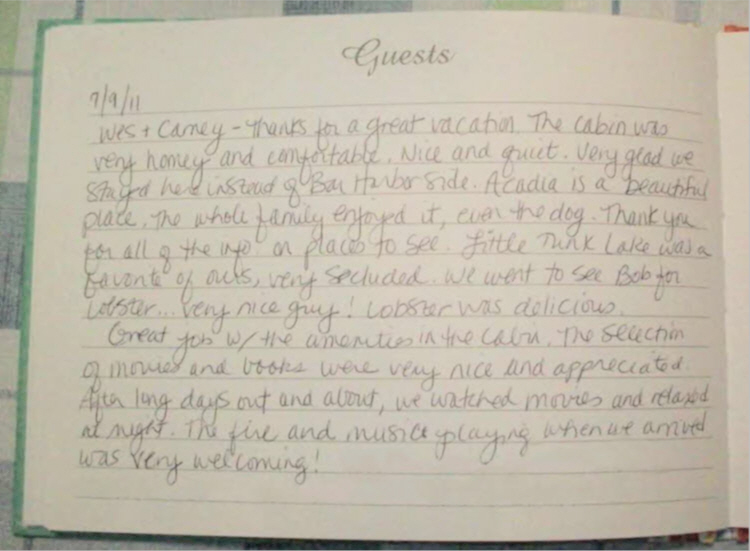 Guests
7/9/11
Wes + Carney - Thanks for a great vacation. The cabin was
very homey and comfortable. Nice and quiet. Very glad we
stayed here instead of Bar Harbor side. Acadia is a beautiful
place. The whole family enjoyed it, even the dog. Thank you
for all of the info on places to see. Little Tunk Lake was a
favorite of ours, very secluded. We went to see Bob for
Lobster... very nice guy! Lobster was delicious.
Great job w/ the amenities in the cabin. The selection
of movies and books were very nice and appreciated.
After long days out and about, we watched movies and relaxed
at night. The fire and music playing when we arrived
was very welcoming!